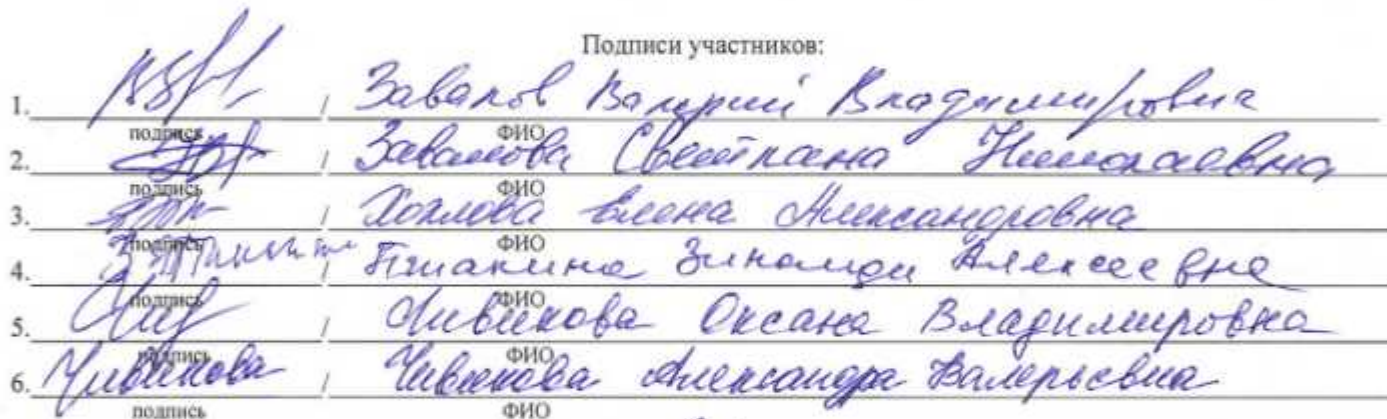 Подписи участников:
1. / Завалов Валерий Владимировна
подпись ФИО
2. / Завалова Светлана Николаевна
подпись ФИО
3. / Хохлова Елена Александровна
подпись ФИО
4. / Алексеевне
подпись ФИО
5. / Оксана Владимировна
подпись ФИО
6. Чивикова / Чивикова Александра Валерьевна
подпись ФИО